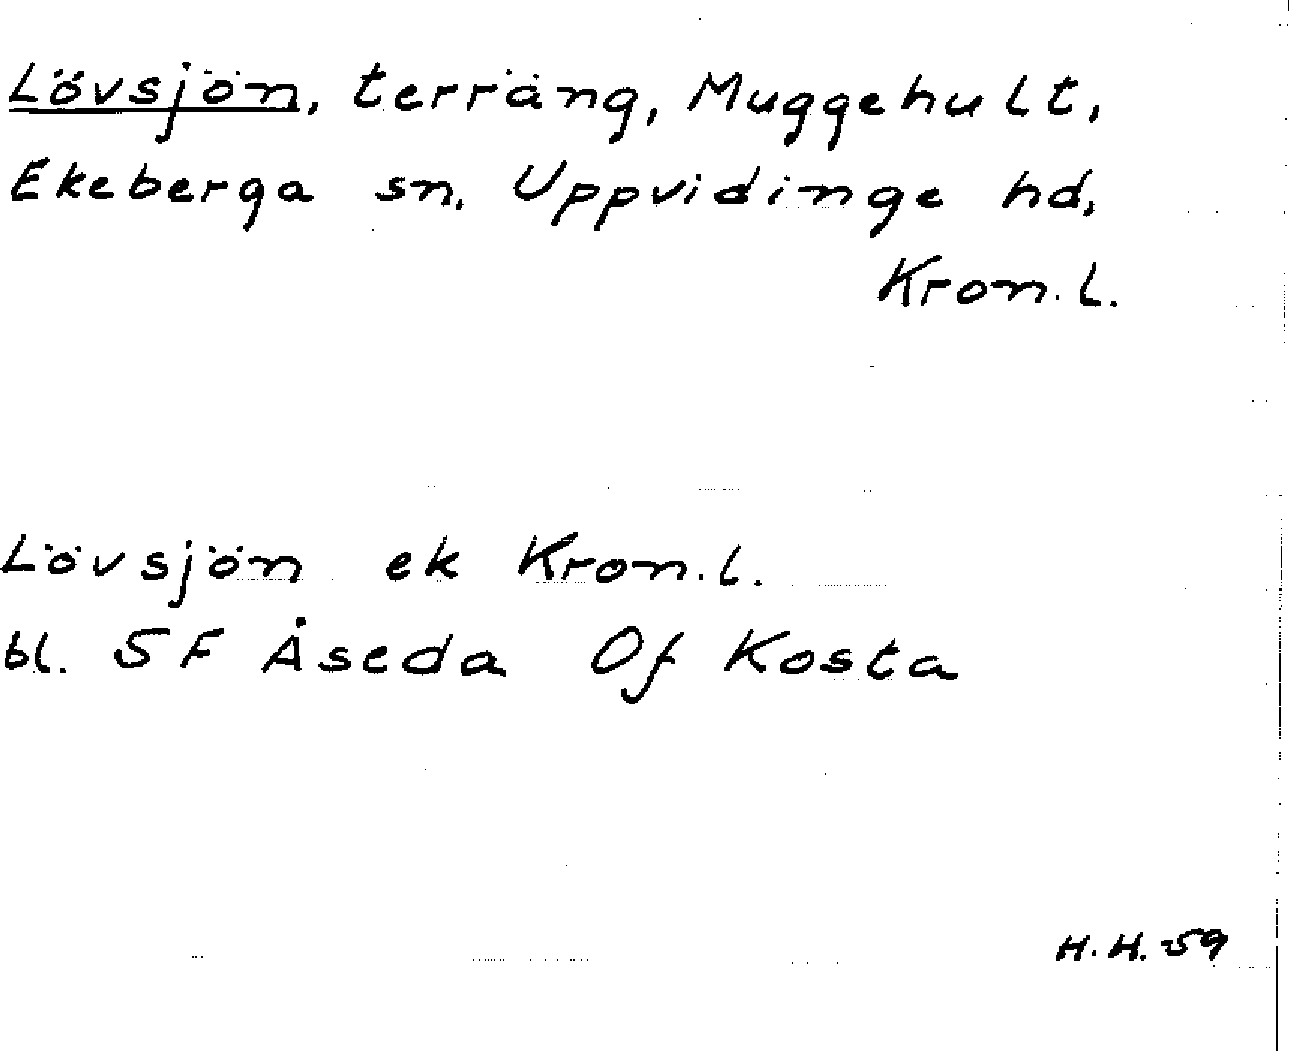 Lövsjön, terräng, Muggehult,
Ekeberga sn. Uppvidinge hd,
Kron. l.
Lövsjön ek Kron. l.
bl. 5F Åseda Of Kosta
H. H. 59